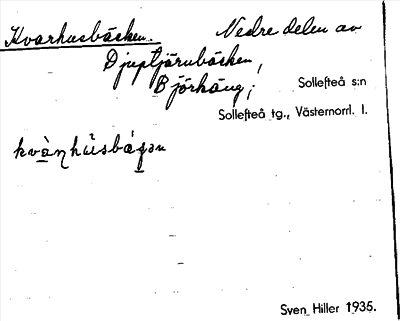 Kvarhusbäcken. Nedre delen av
Djuptjärnbäcken,
Björkäng; Sollefteå s:n
Sollefteå tg., Västernorrl. l.
Sven Hiller 1935.